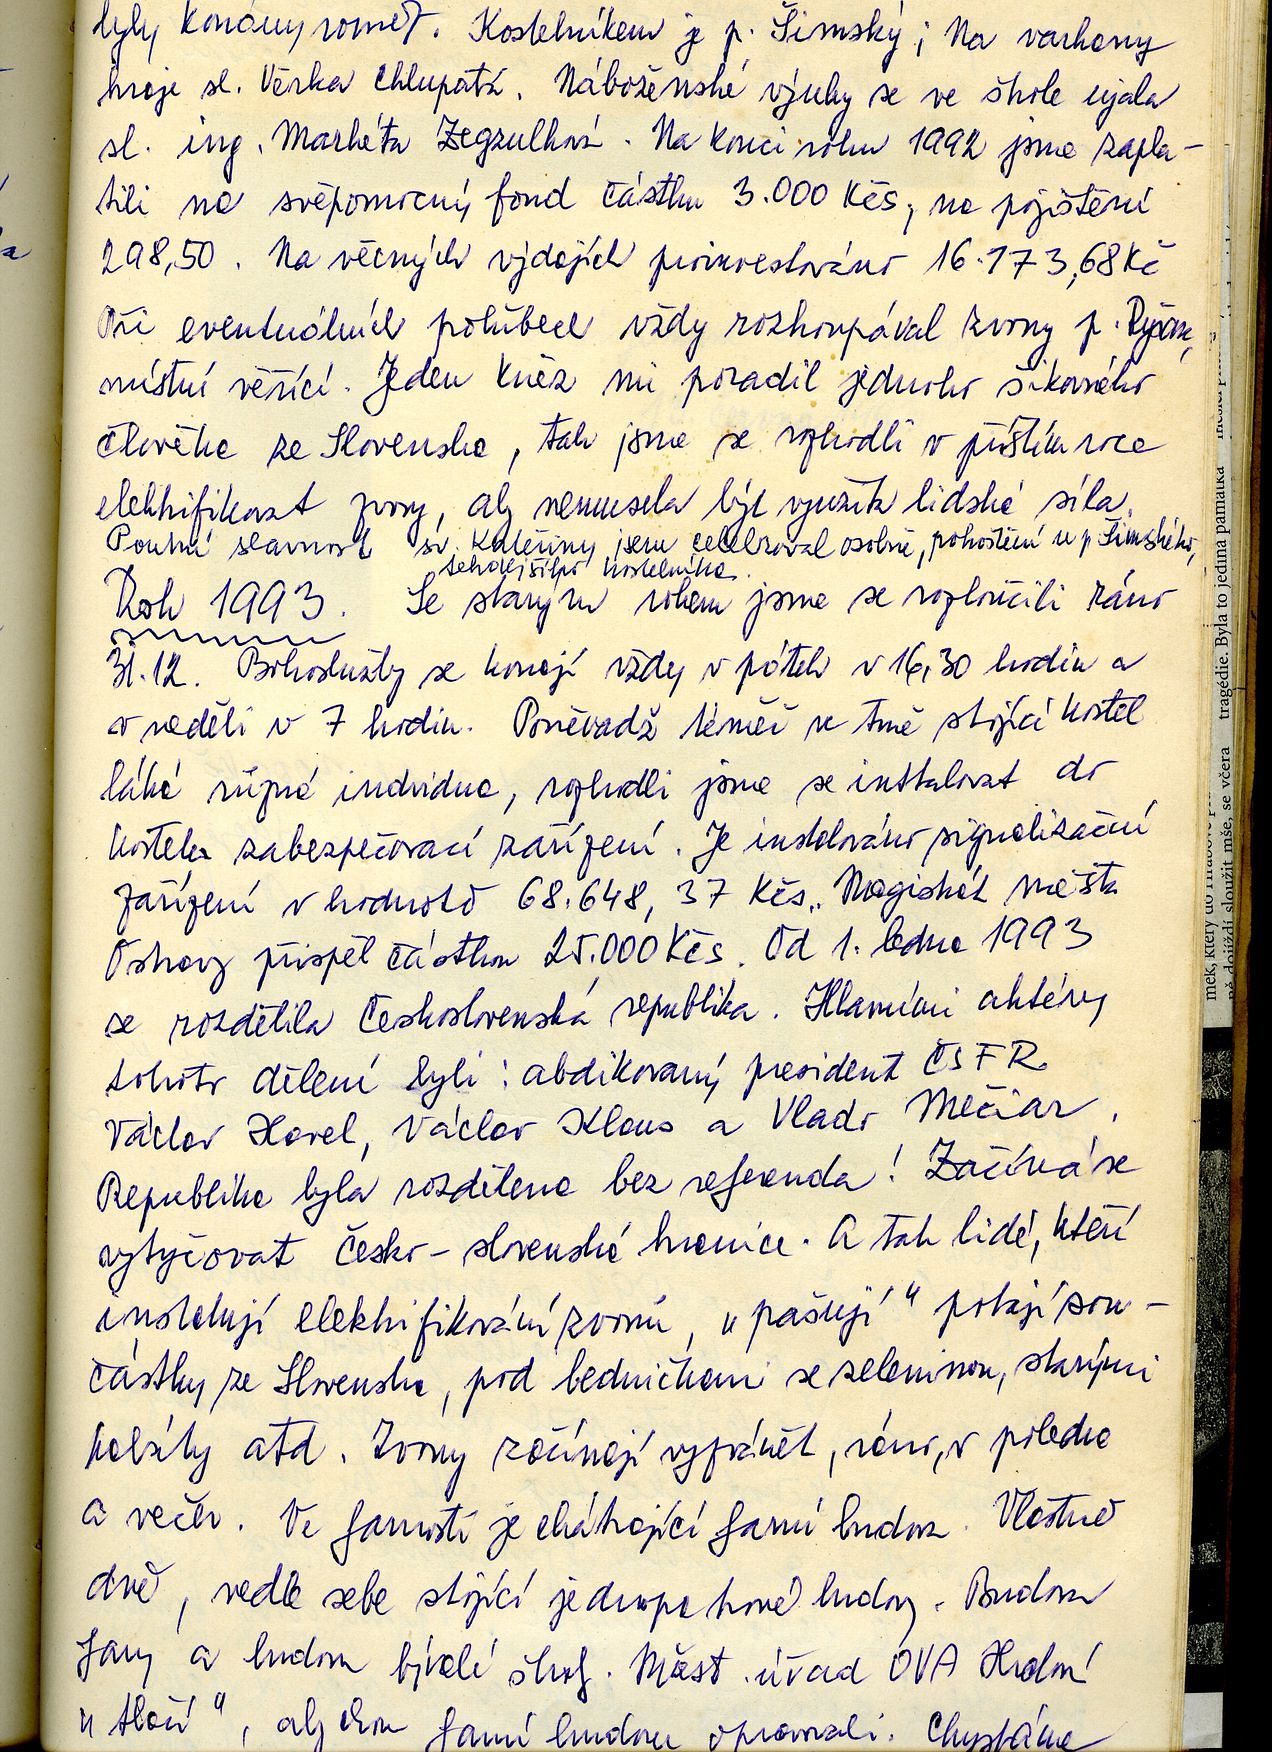 byly konány roráty. Kostelníkem je p. Šimský; Na varhany
hraje sl. Věrka Chlupatá. Náboženské výuky se ve škole ujala
sl. ing. Markéta Zegzulková. Na konci roku 1992 jsme zapla-
tili na svépomocný fond částku 3.000 Kčs, na pojištění
298,50. Na věcných výdajích proinvestováno 16.173,68 Kč
Při eventuálních pohřbech vždy rozhoupával zvony p.
místní věřící. Jeden kněz mi poradil jednoho šikovného
člověka ze Slovenska, tak jsme se rozhodli v příštím roce
elektrifikovat zvony, aby nemusela být využita lidská síla.
Pouhá slavnost sv. Kateřiny, jsem celebroval osobně, pohoštění u p. Šimského,
tehdejšího kostelníka.
Rok 1993. Se starým rokem jsme se rozloučili ráno
31.12. Bohoslužby se konají vždy v pátek v 16,30 hodin a
v neděli v 7 hodin. Poněvadž téměř ve tmě stojící kostel
láká různá individua, rozhodli jsme se instalovat do
kostela zabezpečovací zařízení. Je instalováno signalizační
zařízení v hodnotě 68.648,37 Kčs. Magistrát města
Ostravy přispěl částkou 25.000 Kčs. Od 1. ledna 1993
se rozdělila Československá republika. Hlavními aktéry
tohoto dělení byli: abdikovaný president ČSFR
Václav Havel, Václav Klaus a Vlado Mečiar.
Republika byla rozdělena bez referenda! Začíná se
vytyčovat česko-slovenské hranice. A tak lidé, kteří
instalují elektrifikování zvonů, "pašují" potají sou-
částky ze Slovenska, pod bedničkami se zeleninou, starými
kabáty atd. Zvony začínají vyzvánět, ráno, v poledne
a večer. Ve farnosti je chátrající farní budova. Vlastně
dvě, vedle sebe stojící jednopatrové budovy. Budova
fary a budova bývalé školy. Měst. úřad OVA Hrabová
"tlačí", abychom farní budovu opravovali. Chystáme
mek, který do Hrabové
ně dojíždí sloužit mše, se včera
tragédie. Byla to jediná památka